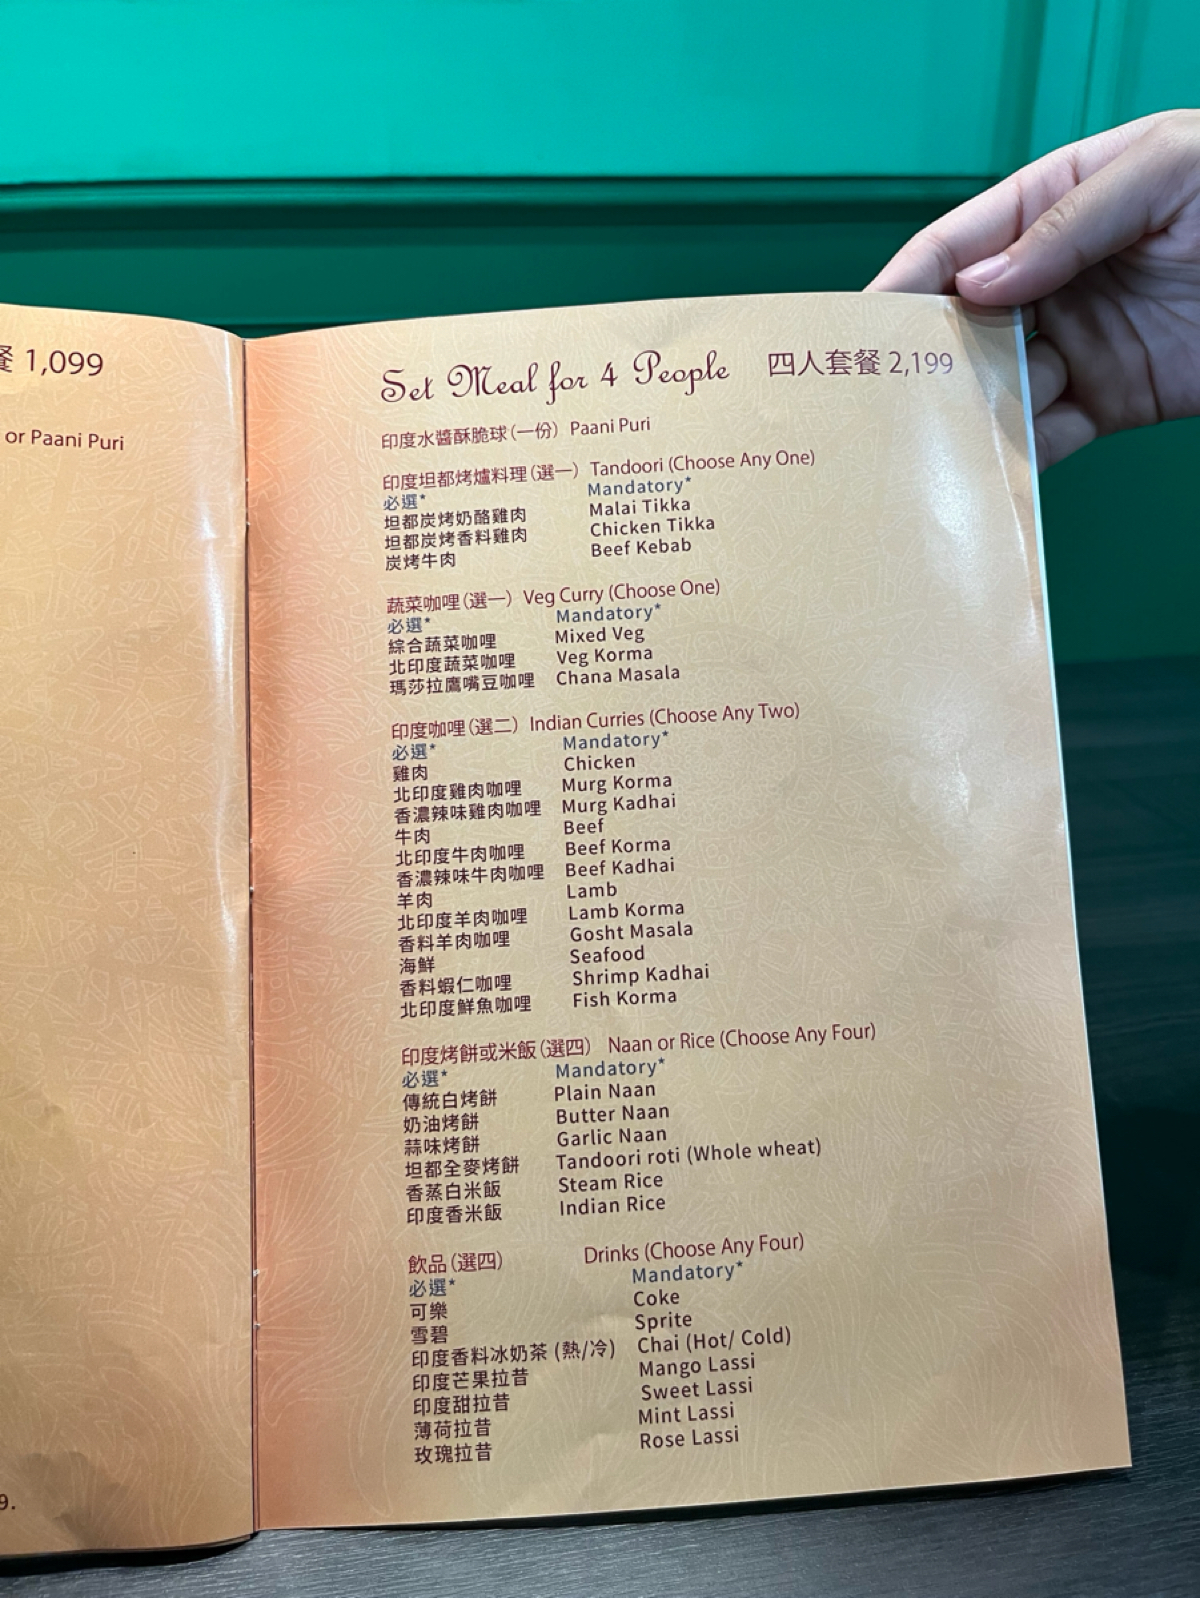 餐 1,099
or Paani Puri
9.
Set Meal for 4 People 四人套餐 2,199
印度水醬酥脆球(一份) Paani Puri
印度坦都烤爐料理(選一) Tandoori (Choose Any One)
必選* Mandatory*
坦都炭烤奶酪雞肉 Malai Tikka
坦都炭烤香料雞肉 Chicken Tikka
炭烤牛肉 Beef Kebab
蔬菜咖哩(選一) Veg Curry (Choose One)
必選* Mandatory*
綜合蔬菜咖哩 Mixed Veg
北印度蔬菜咖哩 Veg Korma
瑪莎拉鷹嘴豆咖哩 Chana Masala
印度咖哩(選二) Indian Curries (Choose Any Two)
必選* Mandatory*
雞肉 Chicken
北印度雞肉咖哩 Murg Korma
香濃辣味雞肉咖哩 Murg Kadhai
牛肉 Beef
北印度牛肉咖哩 Beef Korma
香濃辣味牛肉咖哩 Beef Kadhai
羊肉 Lamb
北印度羊肉咖哩 Lamb Korma
香料羊肉咖哩 Gosht Masala
海鮮 Seafood
香料蝦仁咖哩 Shrimp Kadhai
北印度鮮魚咖哩 Fish Korma
印度烤餅或米飯(選四) Naan or Rice (Choose Any Four)
必選* Mandatory*
傳統白烤餅 Plain Naan
奶油烤餅 Butter Naan
蒜味烤餅 Garlic Naan
坦都全麥烤餅 Tandoori roti (Whole wheat)
香蒸白米飯 Steam Rice
印度香米飯 Indian Rice
飲品(選四) Drinks (Choose Any Four)
必選* Mandatory*
可樂 Coke
雪碧 Sprite
印度香料冰奶茶 (熱/冷) Chai (Hot/ Cold)
印度芒果拉昔 Mango Lassi
印度甜拉昔 Sweet Lassi
薄荷拉昔 Mint Lassi
玫瑰拉昔 Rose Lassi